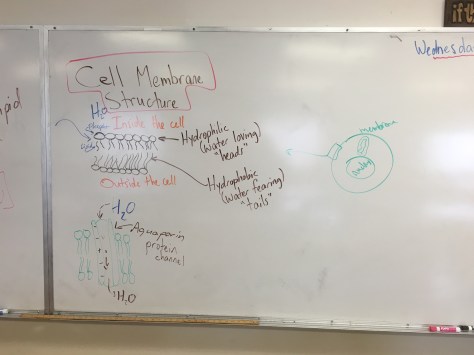 Wednesda
Cell Membrane
Structure
H₂O
Inside the cell
Hydrophilic
(Water loving)
"heads"
Hydrophobic
(water fearing)
"tails"
Outside the cell
membrane
H₂O
Aquaporin
protein
channel
H₂O